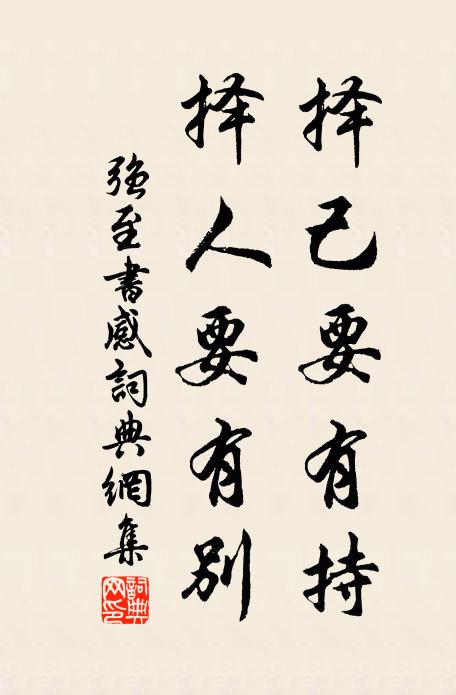 择己要有持
择人要有别
强至書感詞典網集
詞典网印